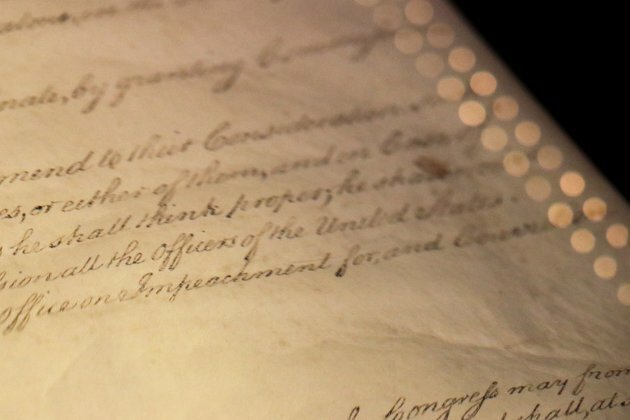 nate, by granting
mmend to their Consideration
es, or either of them, and in Case
he shall think proper; he shall
sion all the Officers of the United States.
Office on Impeachment for, and
Congress may from
shall, at